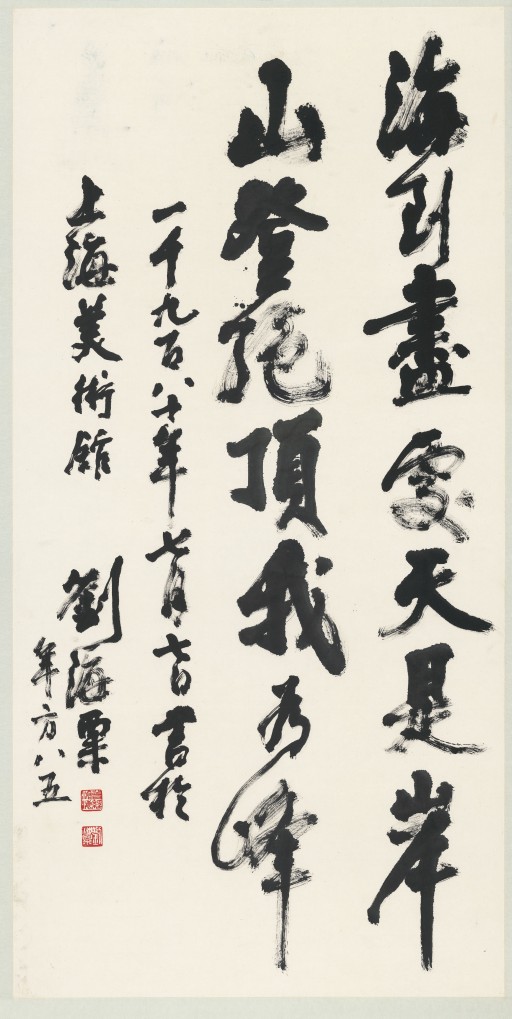 海到盡處天是岸
山登絶頂我為峰
一千九百八十年七月七日書於
上海美術館 劉海粟
年方八五